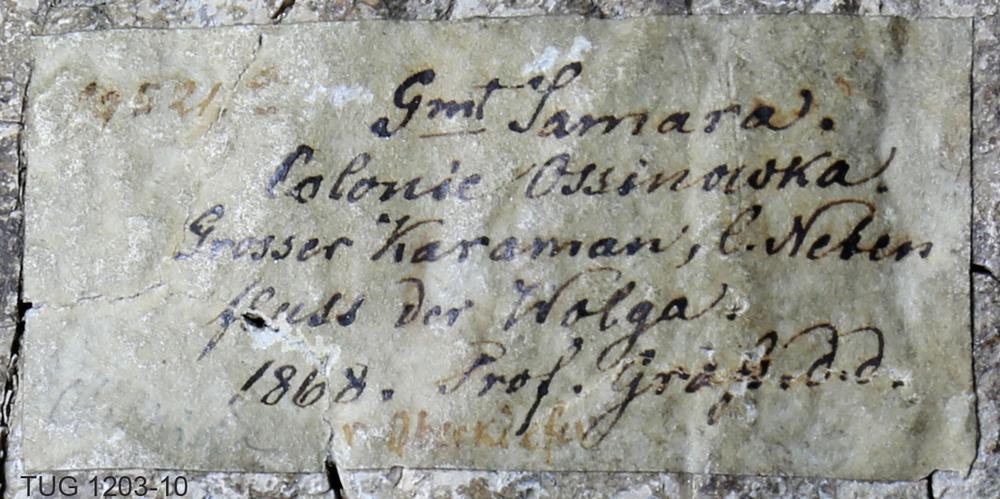 Gmt Samara.
Colonie Ossinowka.
Grosser Karaman, l. Neben
fluss der Wolga.
1868. Prof. d.d.
r Oberkiefer
TUG 1203-10